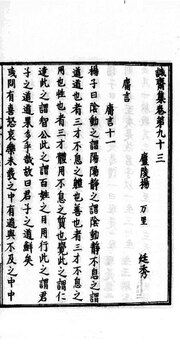 誠齋集卷第九十三
廬陵楊 萬里 廷秀
庸言
庸言十一
楊子曰陰動之謂陽陽靜之謂陰動靜不息之謂
道道也者三才不息之體也善也者三才不息之
用也性也者三才體用不息之質也覺此之謂仁
達此之謂智公此之謂百姓之日用行此之謂君
子之道道果多乎哉故曰君子之道鮮矣
或問有喜怒哀樂未發之中有過與不及之中中